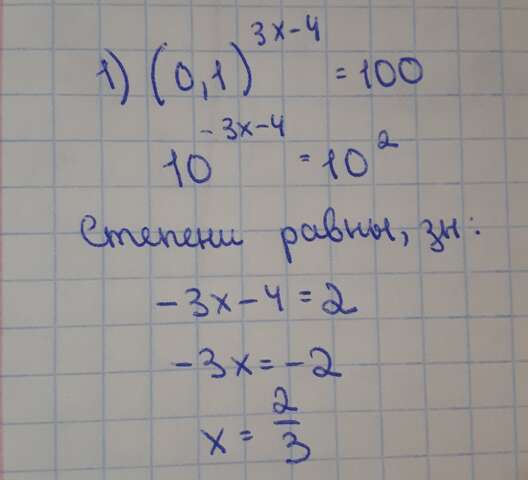 1) (0,1)^{3x-4} = 100
10^{-3x-4} = 10^2
Степени равны, зн:
-3x-4=2
-3x=-2
x = 2/3